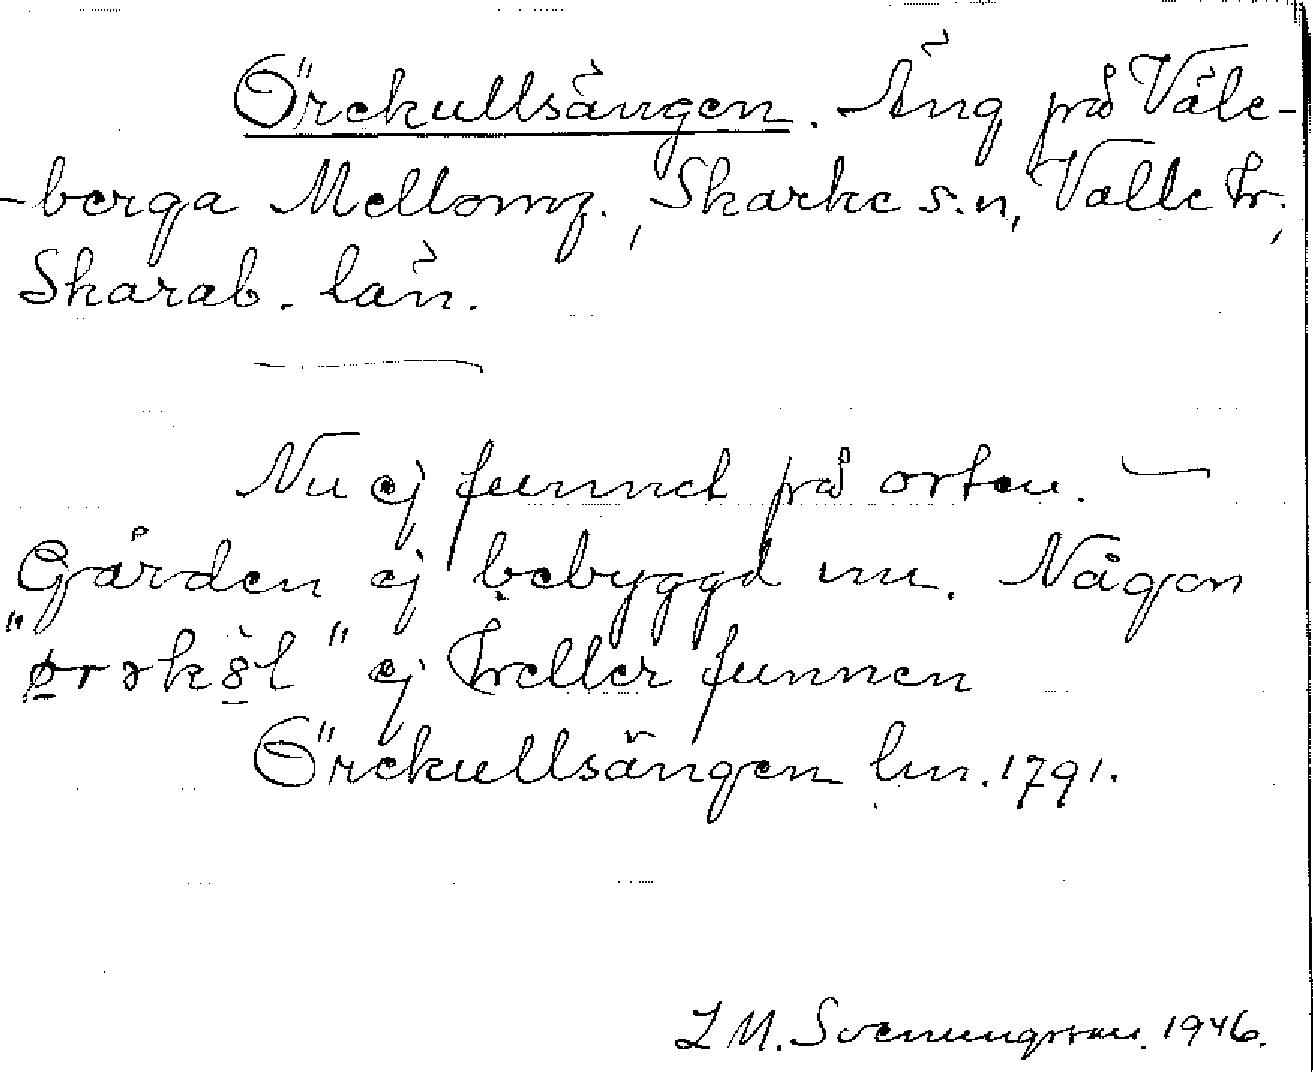 Örekullsängen. Äng på Våle-
-berga Mellomg., Skarke s:n, Valle hr.,
Skarab. län.
Nu ej funnet på orten. —
Gården ej bebyggd nu. Någon
"ørək8l" ej heller funnen
Örekullsängen lm. 1791.
L M. Svenungsson. 1946.